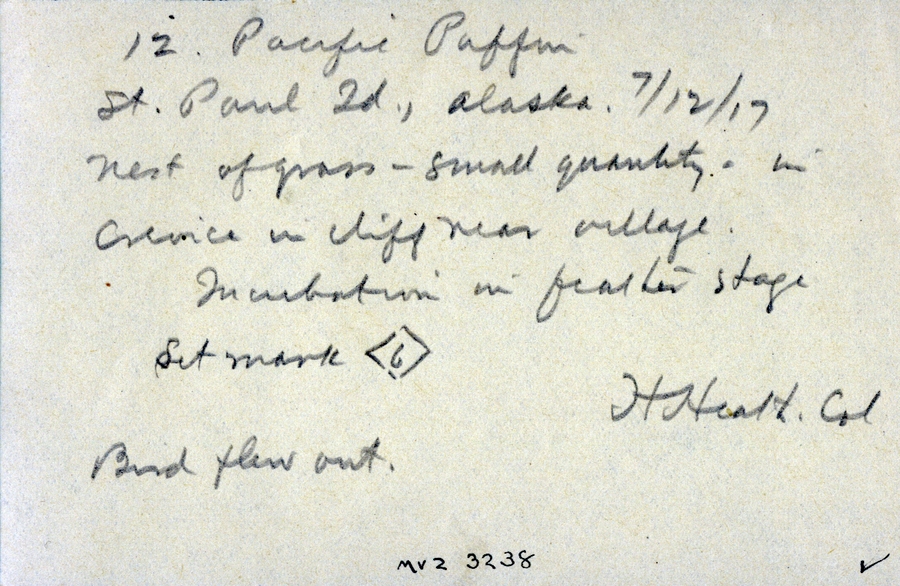 12. Pacific Puffin
St. Paul Id., Alaska. 7/12/17
Nest of grass – small quantity. in
crevice in cliff near village.
Incubation in feather stage
Set mark <6>
H Heath. Col
Bird flew out.
MVZ 3238 ✓